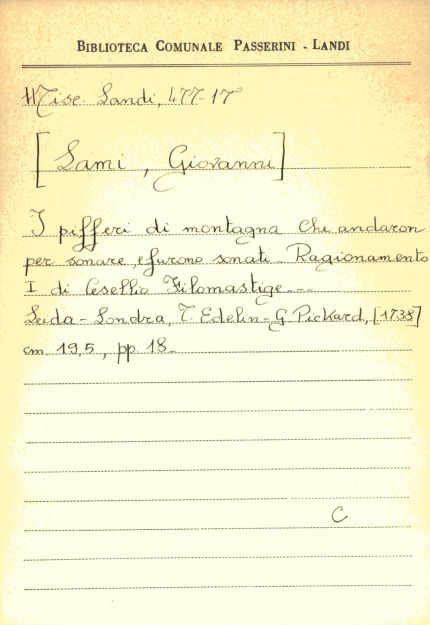 BIBLIOTECA COMUNALE PASSERINI - LANDI
Misc. Landi, 477-17°
[Lami, Giovanni]
I pifferi di montagna che andaron
per sonare, e furono sonati - Ragionamento
I di Cesellio Filomastige...
Leida - Londra, T. Edelin - G Pickard, [1738]
cm 19,5, pp. 18.
C